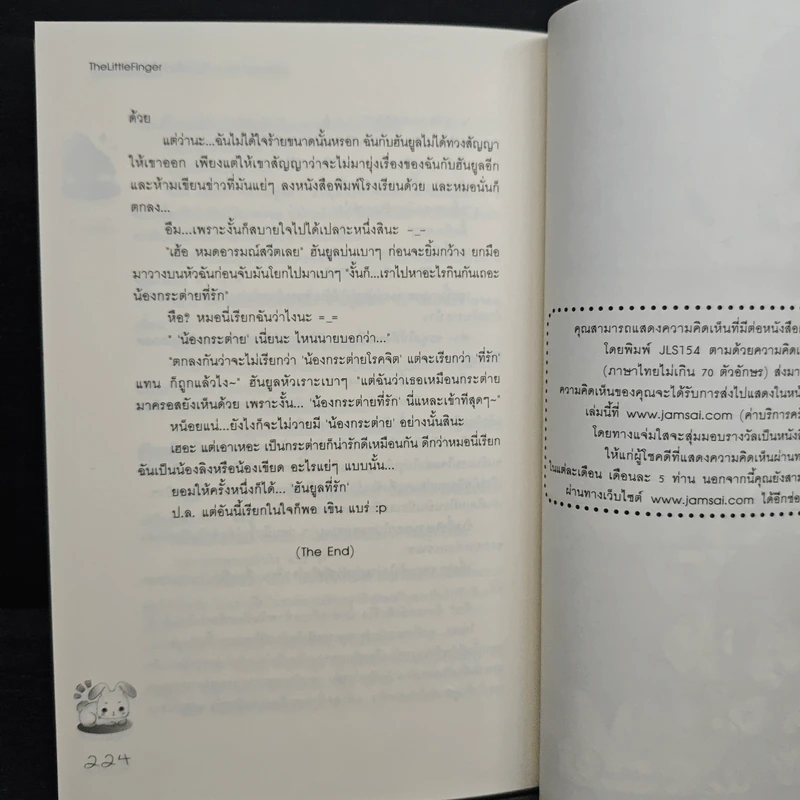 TheLittleFinger
ด้วย
แต่ว่านะ...ฉันไม่ได้ใจร้ายขนาดนั้นหรอก ฉันกับฮันยูลไม่ได้ทวงสัญญา
ให้เขาออก เพียงแต่ให้เขาสัญญาว่าจะไม่มายุ่งเรื่องของฉันกับฮันยูลอีก
และห้ามเขียนข่าวที่มันแย่ๆ ลงหนังสือพิมพ์โรงเรียนด้วย และหมอนั่นก็
ตกลง...
อืม...เพราะงั้นก็สบายใจไปได้เปลาะหนึ่งสินะ -_-
"เฮ้อ หมดอารมณ์สวีตเลย" ฮันยูลบ่นเบาๆ ก่อนจะยิ้มกว้าง ยกมือ
มาวางบนหัวฉันก่อนจับมันโยกไปมาเบาๆ "งั้นก็...เราไปหาอะไรกินกันเถอะ
น้องกระต่ายที่รัก"
หือ? หมอนี่เรียกฉันว่าไงนะ =_=
" 'น้องกระต่าย' เนี่ยนะ ไหนนายบอกว่า..."
"ตกลงกันว่าจะไม่เรียกว่า 'น้องกระต่ายโรคจิต' แต่จะเรียกว่า 'ที่รัก'
แทน ก็ถูกแล้วไง~" ฮันยูลหัวเราะเบาๆ "แต่ฉันว่าเธอเหมือนกระต่าย
มาครอสยังเห็นด้วย เพราะงั้น... 'น้องกระต่ายที่รัก' นี่แหละเข้าที่สุดๆ~"
หน่อยแน่...ยังไงก็จะไม่วายมี 'น้องกระต่าย' อย่างนั้นสินะ
เฮอะ แต่เอาเหอะ เป็นกระต่ายก็น่ารักดีเหมือนกัน ดีกว่าหมอนี่เรียก
ฉันเป็นน้องลิงหรือน้องเขียด อะไรแย่ๆ แบบนั้น...
ยอมให้ครั้งหนึ่งก็ได้... 'ฮันยูลที่รัก'
ป.ล. แต่อันนี้เรียกในใจก็พอ เขิน แบร่ :p
(The End)
224
คุณสามารถแสดงความคิดเห็นที่มีต่อหนังสือ
โดยพิมพ์ JLS154 ตามด้วยความคิดเ
(ภาษาไทยไม่เกิน 70 ตัวอักษร) ส่งมา
ความคิดเห็นของคุณจะได้รับการส่งไปแสดงในหน้
เล่มนี้ที่ www.jamsai.com (ค่าบริการคร
โดยทางแจ่มใสจะสุ่มมอบรางวัลเป็นหนังสื
ให้แก่ผู้โชคดีที่แสดงความคิดเห็นผ่านท
ในแต่ละเดือน เดือนละ 5 ท่าน นอกจากนี้คุณยังสาม
ผ่านทางเว็บไซต์ www.jamsai.com ได้อีกช่อ